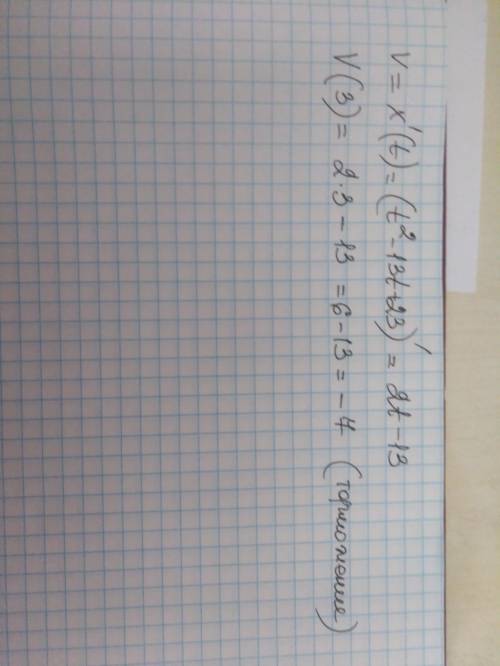 V = x'(t) = (t² - 13t + 23)' = 2t - 13
V(3) = 2·3 - 13 = 6 - 13 = -7 (торможение)